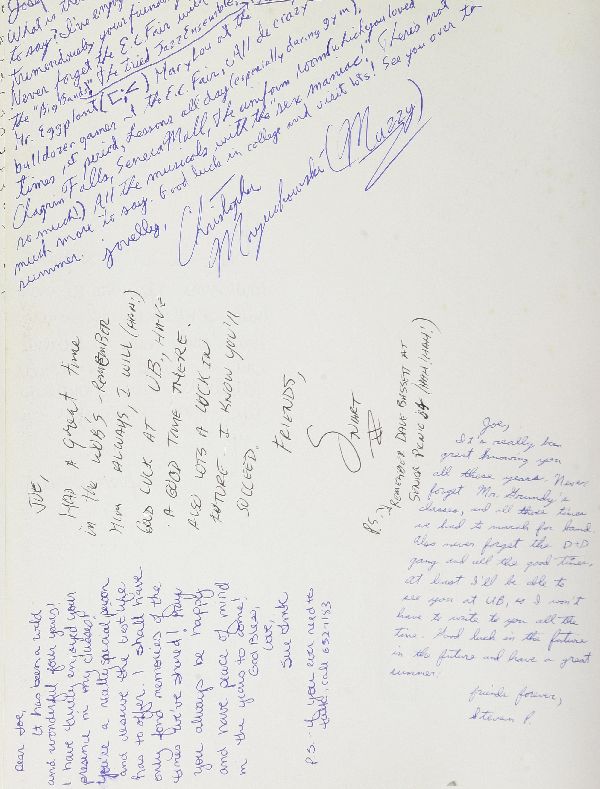 What is there
to say? I've enjoyed
tremendously your friendship
Never forget the E.C. Fair with
the "Big Bands" The Fried Jazz Ensemble,
Mr. Eggplant Mary Lou at the
bulldozer games - the E.C. Fair, All de crazy
times, 1st period, Lessons all day (especially during gym),
Chagrin Falls, Seneca Mall, the uniform room which you loved
so much!) All the musicals with the "sex maniac!" There's not
much more to say. Good luck in college and visit lots! See you over the
summer.
Lovelley,
Christopher
(Muzzy)
JOE,
HAD A great time
in the WDB'S - REMEMBER
HIM ALWAYS, I WILL (HAH!)
GOOD LUCK AT UB, HAVE
A GOOD TIME THERE.
ALSO LOTS A LUCK IN
FUTURE. I KNOW YOU'LL
SUCCEED.
FRIENDS,
P.S. - REMEMBER DAVE BASSETT AT
SENIOR PICNIC 84 (HAH! HAH!)
Joe,
It's really been
great knowing you
all these years. Never
forget Mr. Grundy's
classes, and all those times
we had to march for band.
Also never forget the D+D
gang and all the good times.
At least I'll be able to
see you at UB, so I won't
have to write to you all the
time. Good luck in the future
in the future and have a great
summer!
friends forever,
Steven P.
Dear Joe,
It has been a wild
and wonderful four years!
I have truly enjoyed your
presence in my classes!
You're a really special person
and deserve the best life
has to offer. I shall have
only fond memories of the
times we've shared! May
you always be happy
and have peace of mind
in the years to come!
God Bless,
Love,
Sue
P.S. - If you ever need to
talk, call 652-7183